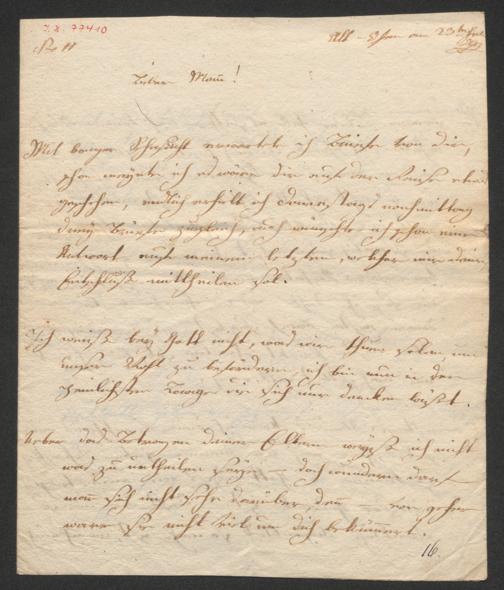 I.N. 77410
Nro 11
Alt-Ofen am 23ten
Lieber Mann!
Mit banger Sehnsucht erwartete ich Briefe von dir,
schon meynte ich es wäre dir auf der Reise etwas
geschehen, endlich erhielt ich Donnerstags nachmittag
Briefe zugleich, auch wünschte ich schon eine
Antwort auf meinen letzten, welcher mir deinen
Entschluß mittheilen soll.
Ich weiß bey Gott nicht, was wir thun sollen, um
unser Wohl zu befördern, ich bin nun in der
peinlichsten Lage die sich nur denken läßt.
Ueber das Betragen deiner Eltern weiß ich nicht
was zu urtheilen seye — doch wundern darf
man sich nicht sehr darüber, denn — vorher
waren sie nicht viel um dich bekümmert.
16.